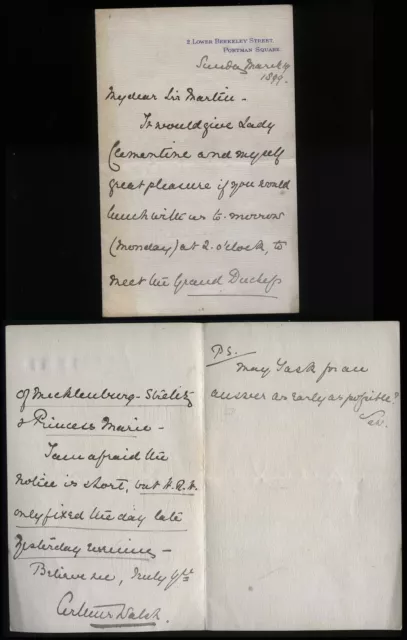 2, Lower Berkeley Street,
Portman Square.
Sunday March 19
1899.
My dear Sir Martin -
It would give Lady
Clementine and myself
great pleasure if you would
lunch with us to-morrow
(Monday) at 2. o'clock, to
meet the Grand Duchess
of Mecklenburg-Strelitz
& Princess Marie -
I am afraid the
notice is short, but H.R.H.
only fixed the day late
yesterday evening -
Believe me, truly yrs
Arthur Walsh.
PS.
May I ask for an
answer as early as possible?